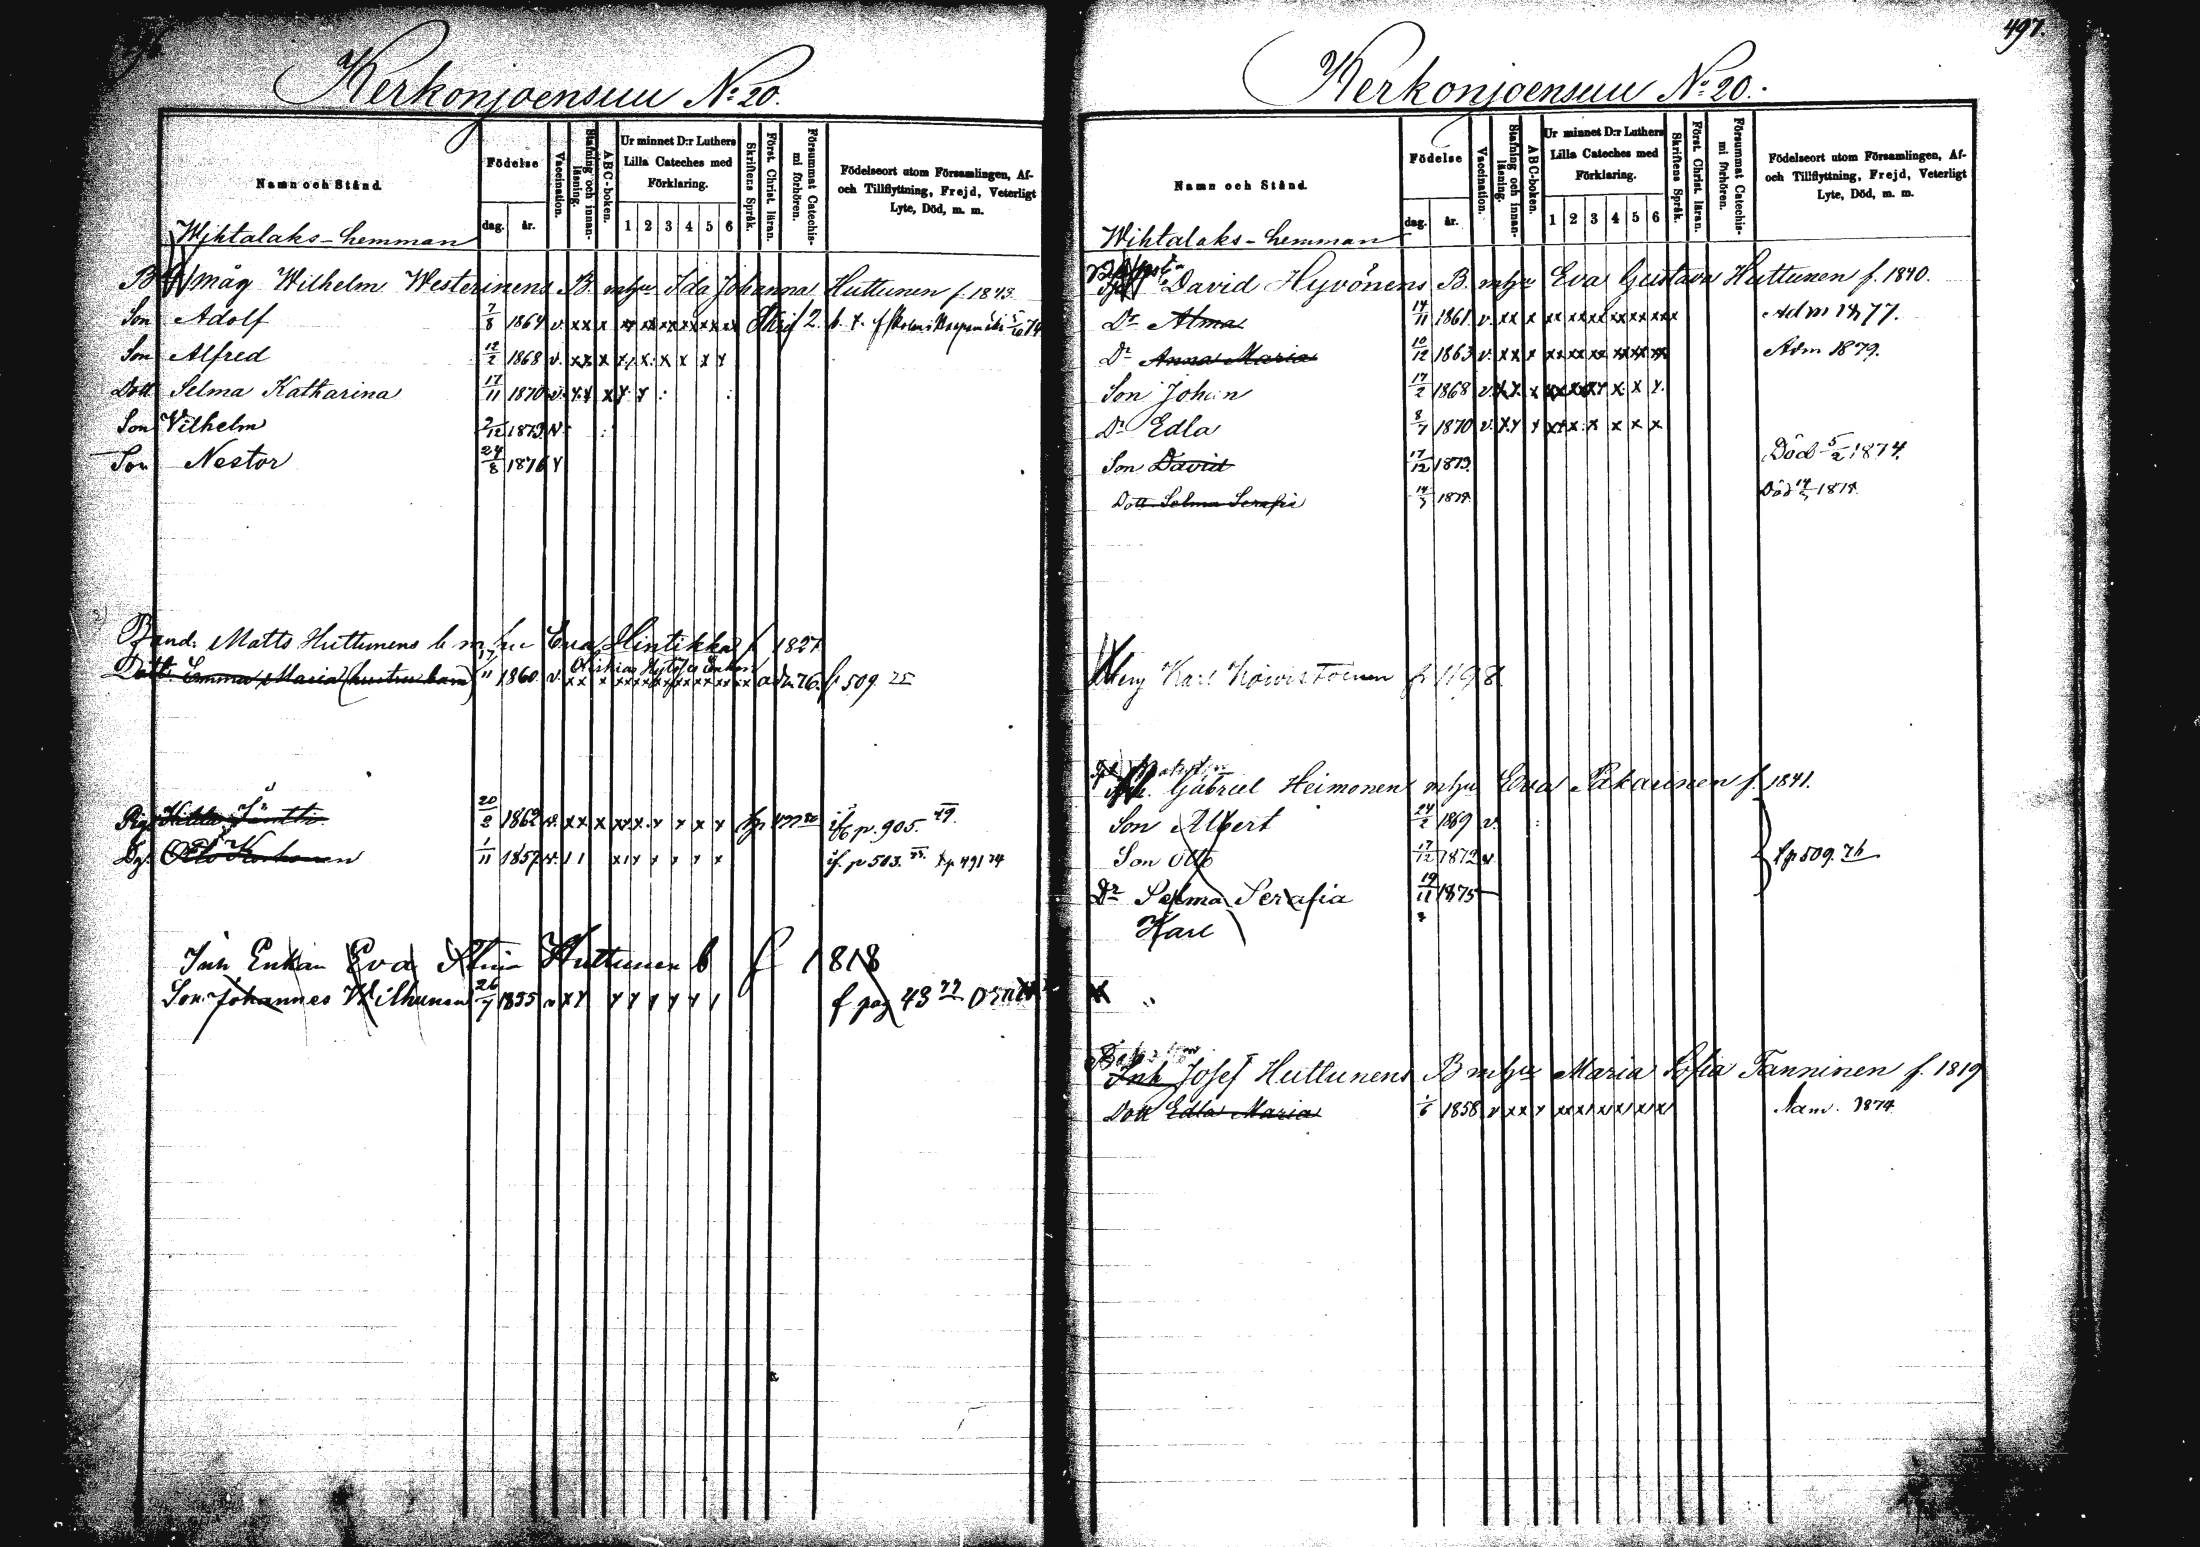 Kerkonjoensuu No 20.
Namn och Stånd.
Födelse
dag. år.
Vaccination.
Stafning och innan-läsning.
ABC-boken.
Ur minnet D:r Luthers Lilla Cateches med Förklaring.
1 2 3 4 5 6
Skriftens Språk.
Först. Christ. läran.
Försummat Catechis-mi förhören.
Födelseort utom Församlingen, Af- och Tillflyttning, Frejd, Veterligt Lyte, Död, m. m.
Wihtalaks-hemman
måg Wilhelm Westerinens B. mhu Ida Johanna Huttunen f. 1843
Son Adolf 7/8 1864 v. x x x
Son Alfred 12/2 1868 v. x x x x x x x x x
Dott Selma Katharina 17/11 1870 v. x x x x x
Son Vilhelm 2/12 1873 v.
Son Nestor 24/8 1876 v
Bond. Matts Huttunens b. m hu Eva Hintikka f 1827
Dott. Emma Maria (hustruns barn) 17/11 1860 v. x x x adm 76. f 509 75
Pig. Hilda Jäntti 20/2 1862 v. x x x x x x x x x p. 905. 79.
Dg. Otto Korhonen 1/11 1857 v. p 503. p 491 74
Inh Enkan Eva Stina Huttunen b f 1818
Son Johannes Wilhunen 26/7 1855 v x x f pag 43 77
497.
Kerkonjoensuu No 20.
Namn och Stånd.
Födelse
dag. år.
Vaccination.
Stafning och innan-läsning.
ABC-boken.
Ur minnet D:r Luthers Lilla Cateches med Förklaring.
1 2 3 4 5 6
Skriftens Språk.
Först. Christ. läran.
Försummat Catechis-mi förhören.
Födelseort utom Församlingen, Af- och Tillflyttning, Frejd, Veterligt Lyte, Död, m. m.
Wihtalaks-hemman
David Hyvönens B. mhu Eva Gustava Huttunen f. 1840.
Dr Alma 14/11 1861 v. x x x Adm 1877.
Dr Anna Maria 10/12 1863 v. x x x Adm 1879.
Son Johan 17/2 1868 v. x x x
Dr Edla 8/7 1870 v. x x x
Son David 17/12 1873. Död 5/2 1874.
Dott Selma Serafia 14/3 1878
Karl Koivistoinen f. 1198
Gabriel Heimonen mhu Eva Pakarinen f. 1841.
Son Albert 24/2 1869 v.
Son Otto 17/12 1872 v. f p 509. 76
Dr Selma Serafia 19/11 1875
Karl
Inh Josef Huttunens B mhu Maria Sofia Tanninen f. 1819
Dott Edla Maria 1/6 1858 v x x x Adm. 1874